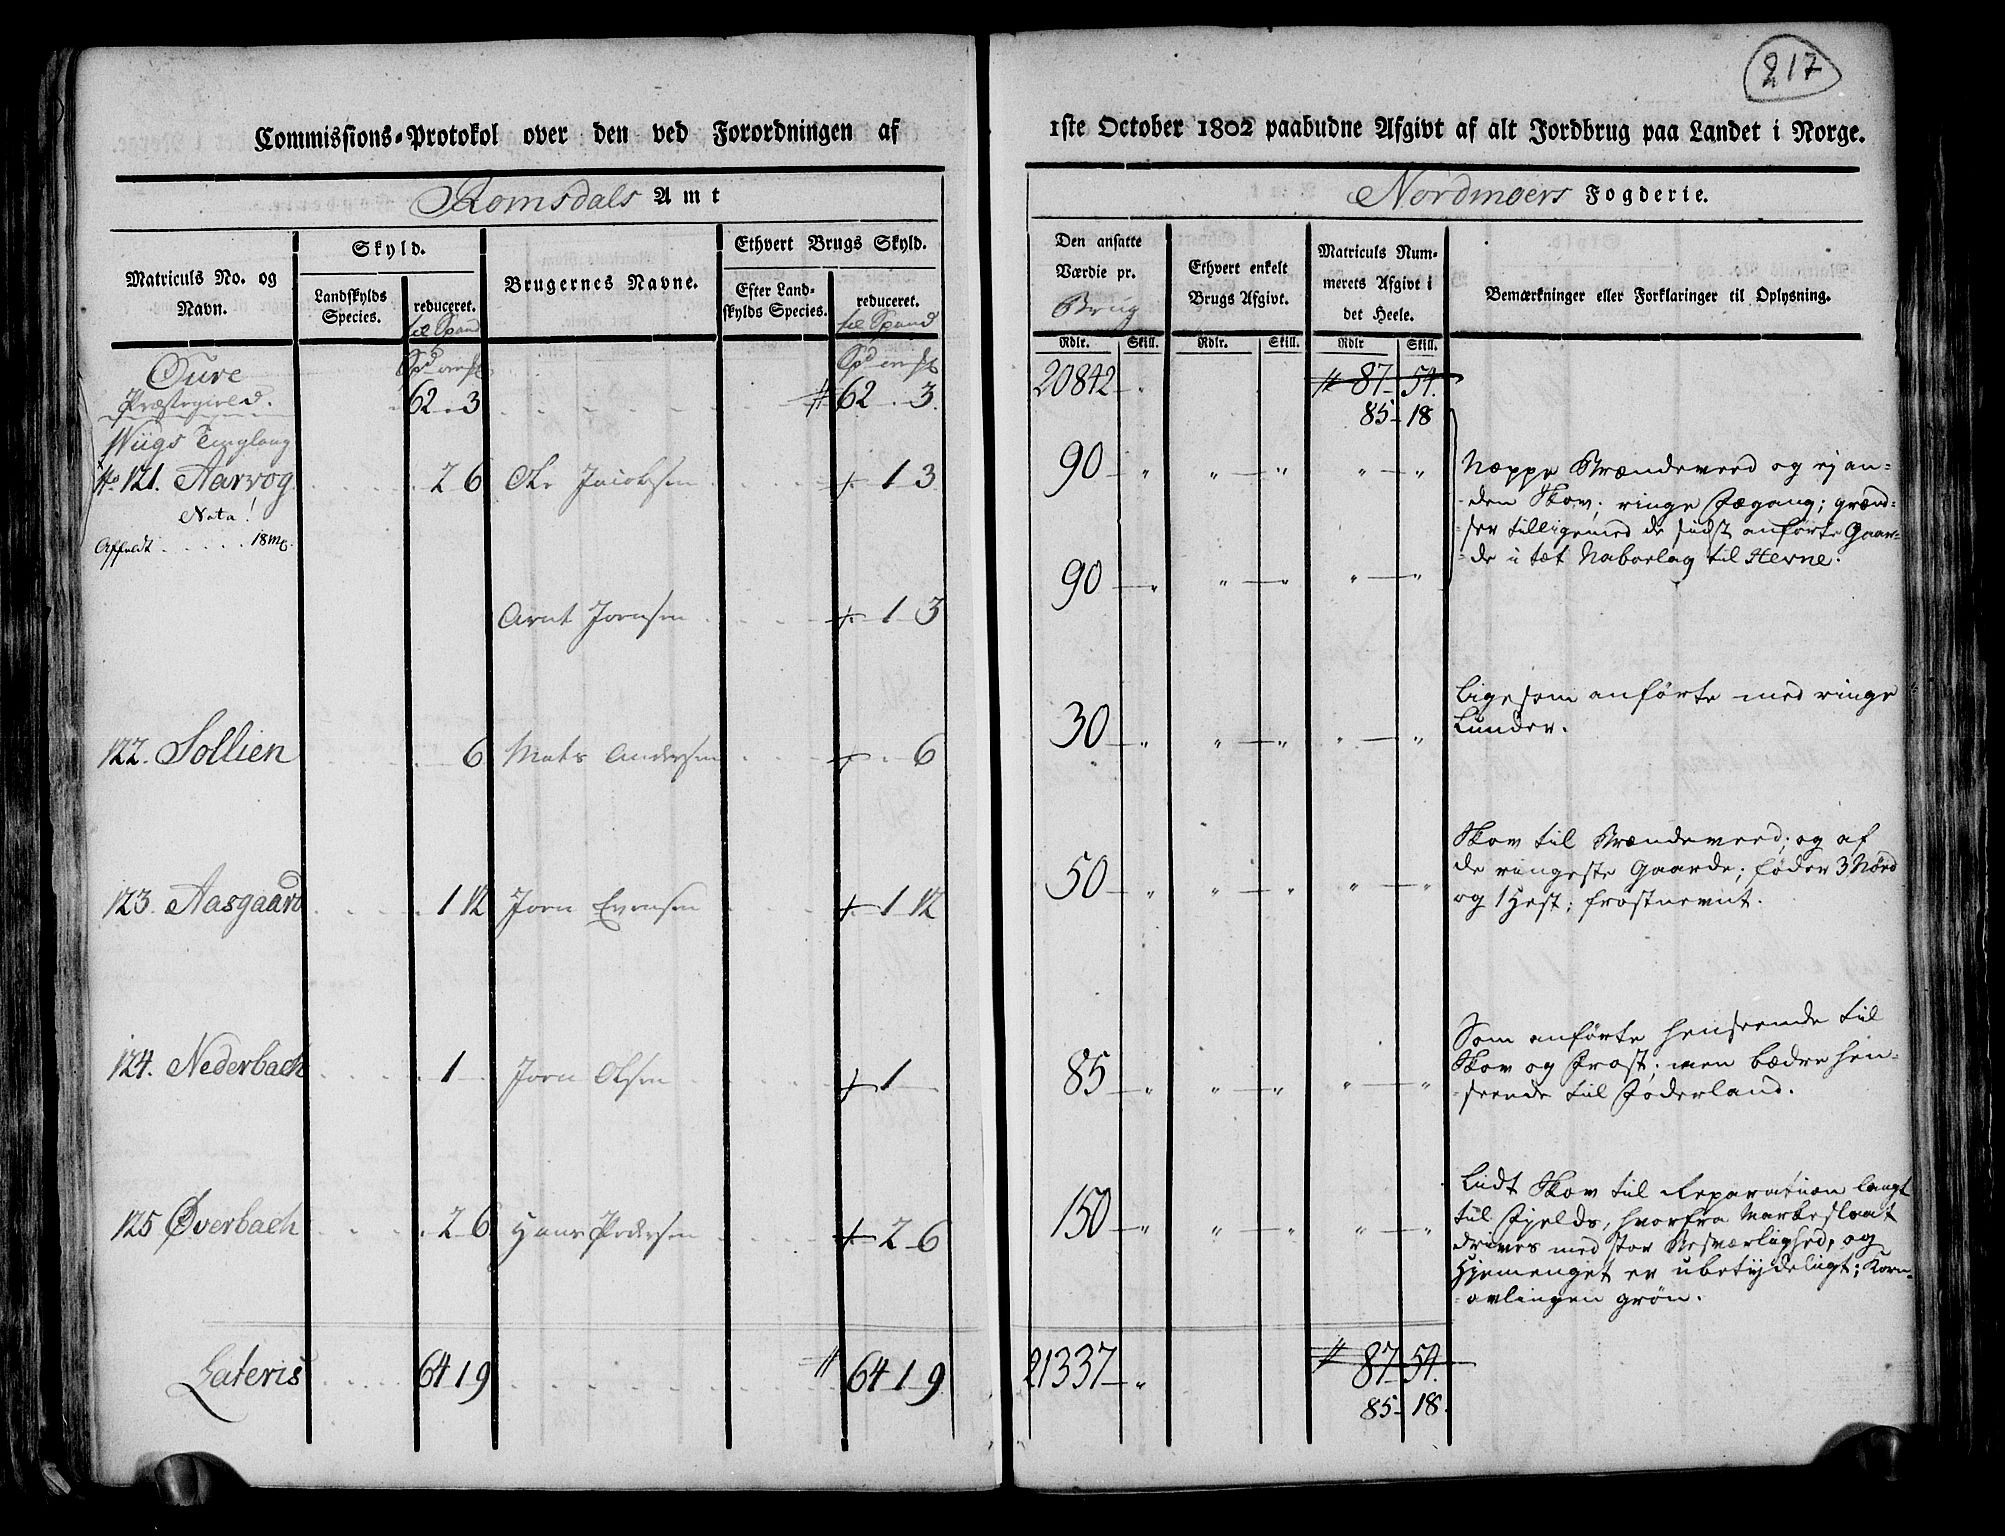 217
Commissions-Protokol over den ved Forordningen af 1ste October 1802 paabudne Afgivt af alt Jordbrug paa Landet i Norge.
Romsdals Amt
Nordmoers Fogderie.
Matriculs No. og Navn.
Skyld.
Landskylds Species.
reduceret.
til Spand
Brugernes Navne.
Ethvert Brugs Skyld.
Efter Landskylds Species.
reduceret.
til Spand
Den ansatte Værdie pr.
Brug
Ethvert enkelt Brugs Afgivt.
Matriculs Nummerets Afgivt i det Heele.
Bemærkninger eller Forklaringer til Oplysning.
Rdlr. Skill. Rdlr. Skill. Rdlr Skill.
Øure
Præstegield.
62 . 3 62 . 3. 20842 " 87 - 54.
85 - 18
Wiigs Tinglaug
No 121. Aarvog 2 6 Ole Jacobsen 1 3 90 " " " " "
Nota!
Affældt 18 mk.
Næppe Brændeveed og ej an-
den Skov; ringe Fægang; grænd-
ser tilligemed de sidst anførte Gaar-
de i tæt Naboelag til Hevne.
Arnt Jornsen 1 3 90 " " " " "
122. Sollien 6 Mats Andersen 6 30 " " " " "
Ligesom anførte med ringe
Lunder.
123. Aasgaard 1 12 Jorn Evensen 1 12 50 " " " " "
Skov til Brændeveed; og af
de ringeste Gaarde; føder 3 Nød
og 1 Hest; frostnemt.
124. Nederbach 1 Jorn Olsen 1 85 " " " " "
Som anførte henseende til
Skov og Frost; men bædre hen-
seende til Foderland.
125 Øverbach 2 6 Hans Pedersen 2 6 150 " " " " "
Lidt Skov til Reparation langt
til Fjelds, hvorfra Markeslaat
drives med stor Besværlighed, og
Hjemenget er ubetydeligt; Korn-
avlingen grøn.
Lateris 64 1 9 64 1 9 21337 " 87 - 54.
85 - 18.